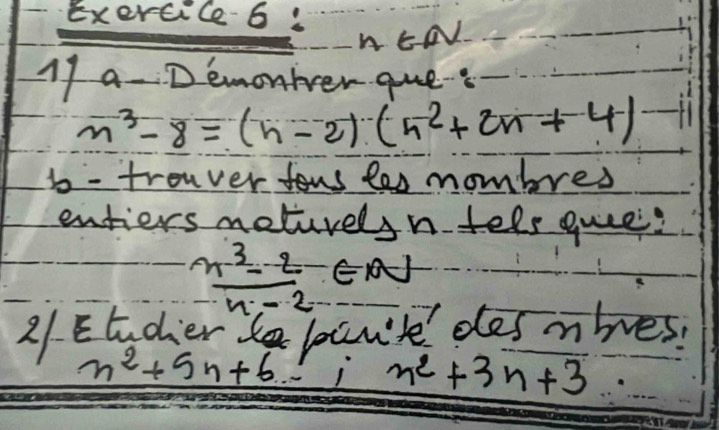 Exercice 6 :
n ∈ ℕ
1) a - Démontrer que :
n³ - 8 = (n - 2) (n² + 2n + 4)
b - trouver tous les nombres
entiers naturels n tels que :
(n³ - 2)/(n - 2) ∈ ℕ
2) Etudier la parité des nbres :
n² + 5n + 6 ; n² + 3n + 3 .